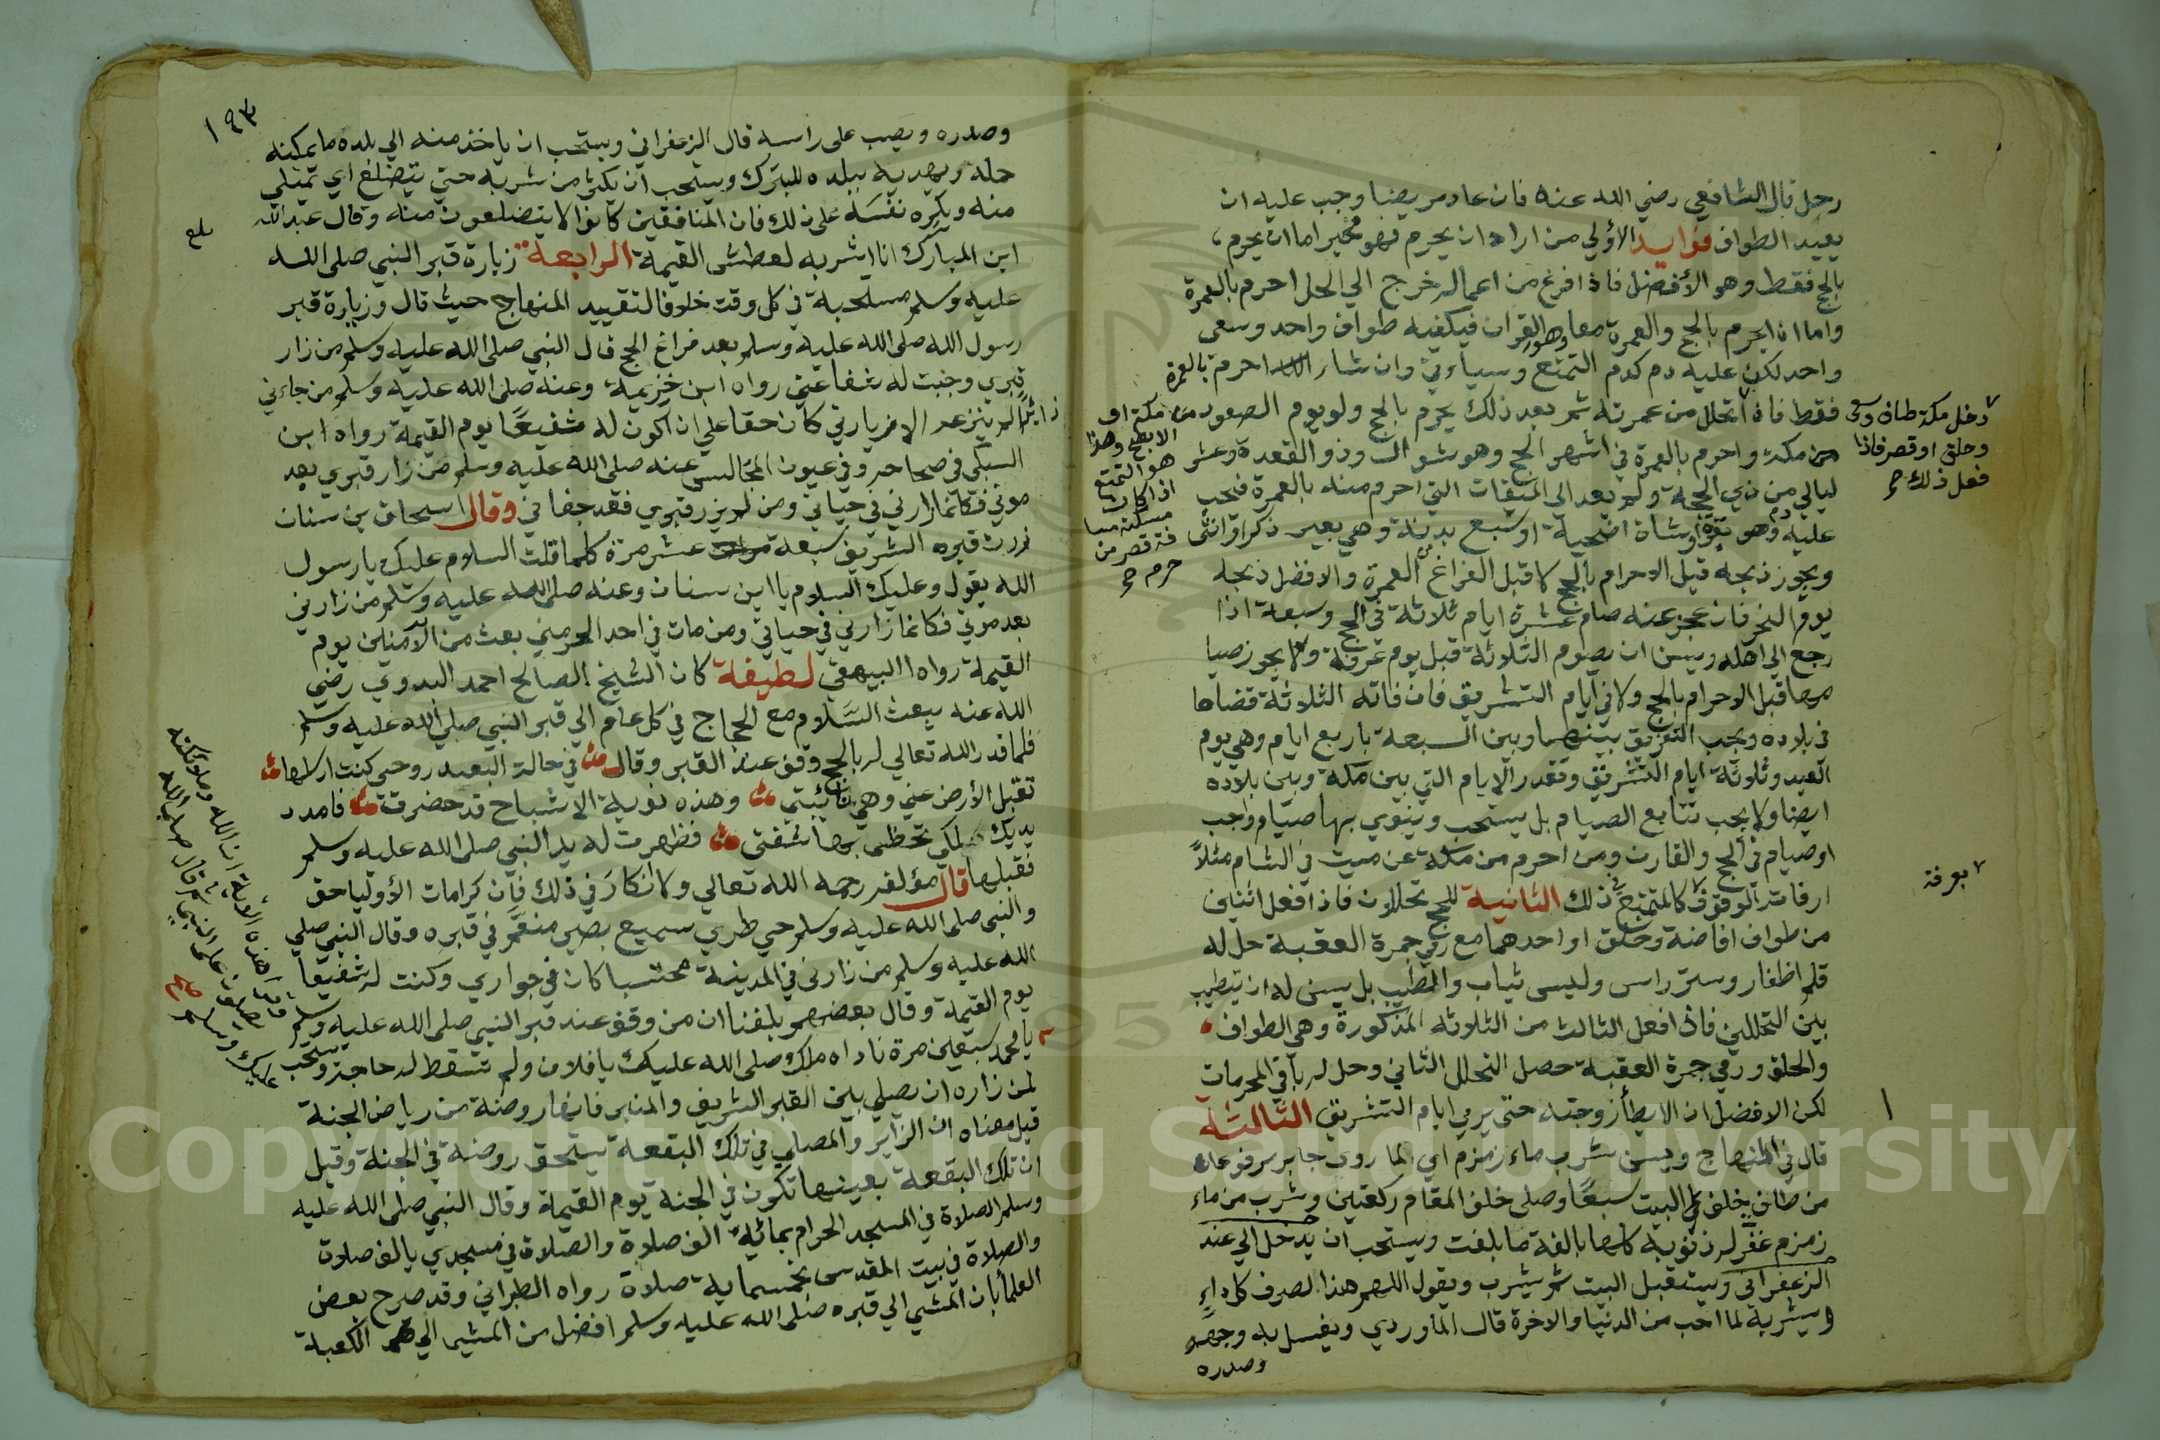 رجل قال الشافعي رضي الله عنه فان عاد مريضا وجب عليه ان
يعيد الطواف فوايد الأولي من اراد ان يحرم فهو مخير اما ان يحرم
بالحج فقط وهو الأفضل فاذا فرغ من اعماله خرج الي الحل احرم بالعمرة
واما ان يحرم بالحج والعمرة معا وهو القران فيكفيه طواف واحد وسعي
واحد لكن عليه دم كدم التمتع وسيأتي وان شا احرم بالعمرة
فقط فاذا تحلل من عمرته ثم بعد ذلك يحرم بالحج ولو يوم الصعود من مكة او
من مكة واحرم بالعمرة في اشهر الحج وهو شوال وذو القعدة وعشر
ليالي من ذي الحجة ولم يعد الي الميقات التي احرم منه بالعمرة فيجب
عليه دم وهو بقرة او شاة اضحية او سبع بدنة وهي بعير ذكرا او انثى
ويجوز ذبحه قبل الاحرام بالحج لا قبل الفراغ من العمرة والافضل ذبحه
يوم النحر فان عجز عنه صام عشرة ايام ثلاثة في الحج وسبعة اذا
رجع الي اهله ويسن ان يصوم الثلاثة قبل يوم عرفة ولا يجوز صيا
مها قبل الاحرام بالحج ولا في ايام التشريق فان فاته الثلاثة قضاها
في بلاده ويجب التفريق بينها وبين السبعة باربع ايام وهي يوم
العيد وثلاثة ايام التشريق وتقدر الايام التي بين مكة وبين بلاده
ايضا ولا يجب تتابع الصيام بل يستحب وينوي بها صيام واجب
او صيام في الحج والقارن ومن احرم من مكة عن ميت في الشام مثلاً
او فاته الوقوف كالمتمتع في ذلك الثانية للحج تحللان فاذا فعل اثنين
من طواف افاضة وحلق او احدهما مع رمي جمرة العقبة حل له
قلم اظفار وستر راس ولبس ثياب والطيب بل يسن له ان يتطيب
بين التحللين فاذا فعل الثالث من الثلاثه المذكورة وهي الطواف
والحلق ورمي جمرة العقبة حصل التحلل الثاني وحل له باقي المحرمات
لكن الافضل ان لا يطأ زوجته حتى يرمي ايام التشريق الثالثة
قال في المنهاج ويسن شرب ماء زمزم اي لما روى جابر مرفوعا
من طاف بالبيت سبعًا وصلى خلف المقام ركعتين وشرب من ماء
زمزم غفر له ذنوبه كلها بالغة ما بلغت ويستحب ان يدخل الي عند
الزعفراني ويستقبل البيت ثم يشرب ويقول اللهم هذا لصرف كل داءٍ
ويشربه لما احب من الدنيا والاخرة قال الماوردي ويغسل به وجهه
وصدره
دخل مكة طاف وسعى
وحلق او قصر فاذا
فعل ذلك
الابطح وهذا
هو التمتع
اذا كان
مسكنه مسا
فة قصر من
حرم
بعرفة
١٩٣
وصدره ويصب على راسه قال الزعفراني ويستحب ان ياخذ منه الي بلده ما يمكنه
حمله ويهديه ببلده للتبرك ويستحب ان يكثر من شربه حتي يتضلع اي تمتلي
منه ويكره نفسَه على ذلك فان المنافقين كانوا لا يتضلعون منه وقال عبد الله
ابن المبارك انا اشربه لعطش القيمة الرابعة زيارة قبر النبي صلى الله
عليه وسلم مستحبة في كل وقت خلافا لتقييد المنهاج حيث قال وزيارة قبر
رسول الله صلى الله عليه وسلم بعد فراغ الحج قال النبي صلى الله عليه وسلم من زار
قبري وجبت له شفاعتي رواه ابن خزيمة وعنه صلى الله عليه وسلم من جاءني
زائرًا لم ينزعه الا زيارتي كان حقا علي ان اكون له شفيعًا يوم القيمة رواه ابن
السبكي في صحاحه وفي عيون المجالس عنه صلى الله عليه وسلم من زار قبري بعد
موتي فكانما زارني في حياتي ومن لم يزر قبري فقد جفاني وقال اسحاق بن سنان
زرت قبره الشريف سبعة عشر مرة كلما قلت السلام عليك يا رسول
الله يقول وعليك السلام يا ابن سنان وعنه صلى الله عليه وسلم من زارني
بعد موتي فكانما زارني في حياتي ومن مات في احد الحرمين بعث من الآمنين يوم
القيمة رواه البيهقي لطيفة كان الشيخ الصالح احمد البدوي رضي
الله عنه يبعث السَّلام مع الحجاج في كل عام الي قبر النبي صلى الله عليه وسلم
فلما قدر الله تعالي له بالحج وقف عند القبر وقال في حالة البعد روحي كنت ارسلها
تقبل الأرض عني وهي نائبتي وهذه نوبة الاشباح قد حضرت فامدد
يديك لكي تحظى بها شفتي فظهرت له يد النبي صلى الله عليه وسلم
فقبلها قال مؤلفه رحمه الله تعالي ولا انكارَ في ذلك فان كرامات الأوليا حق
والنبي صلى الله عليه وسلم حي طري سميع بصير منعم في قبره وقال النبي صلي
الله عليه وسلم من زارني في المدينة محتسبا كان في جواري وكنت له شفيعا
يوم القيمة وقال بعضهم بلغنا ان من وقف عند قبر النبي صلى الله عليه وسلم
يا محمد سبعين مرة ناداه ملك صلى الله عليك يا فلان ولم تسقط له حاجة ويستحب
لمن زاره ان يصلي بين القبر الشريف والمنبر فانها روضة من رياض الجنة
قيل معناه ان الزاير والمصلي في تلك البقعة يستحق روضة في الجنة وقيل
ان تلك البقعة بعينها تكون في الجنة يوم القيمة وقال النبي صلى الله عليه
وسلم الصلاة في المسجد الحرام بمائة الف صلاة والصلاة في مسجدي بالف صلاة
والصلاة في بيت المقدس بخمسماية صلاة رواه الطبراني وقد صرح بعض
العلما بان المشي الي قبره صلى الله عليه وسلم افضل من المشي الي الكعبة
بلغ
هذه الآية ان الله وملائكته
يصلون على النبي ثم قال صلى الله
عليك وسلم
Copyright © King Saud University